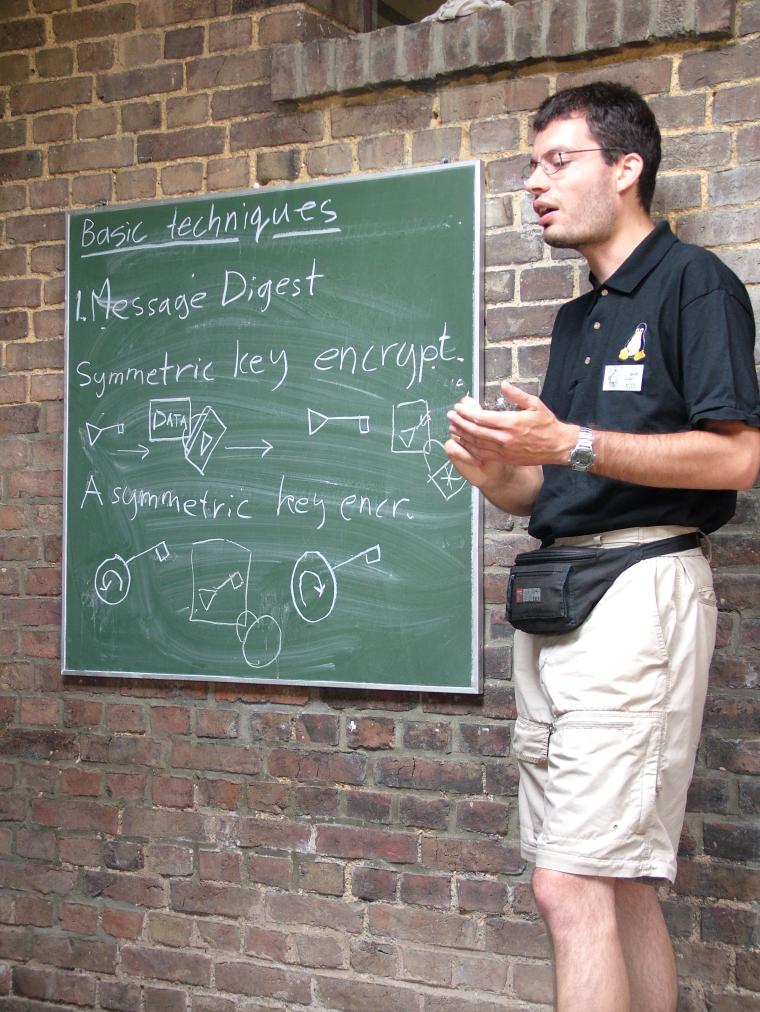 Basic techniques
1. Message Digest
Symmetric key encrypt.
DATA
Asymmetric key encr.